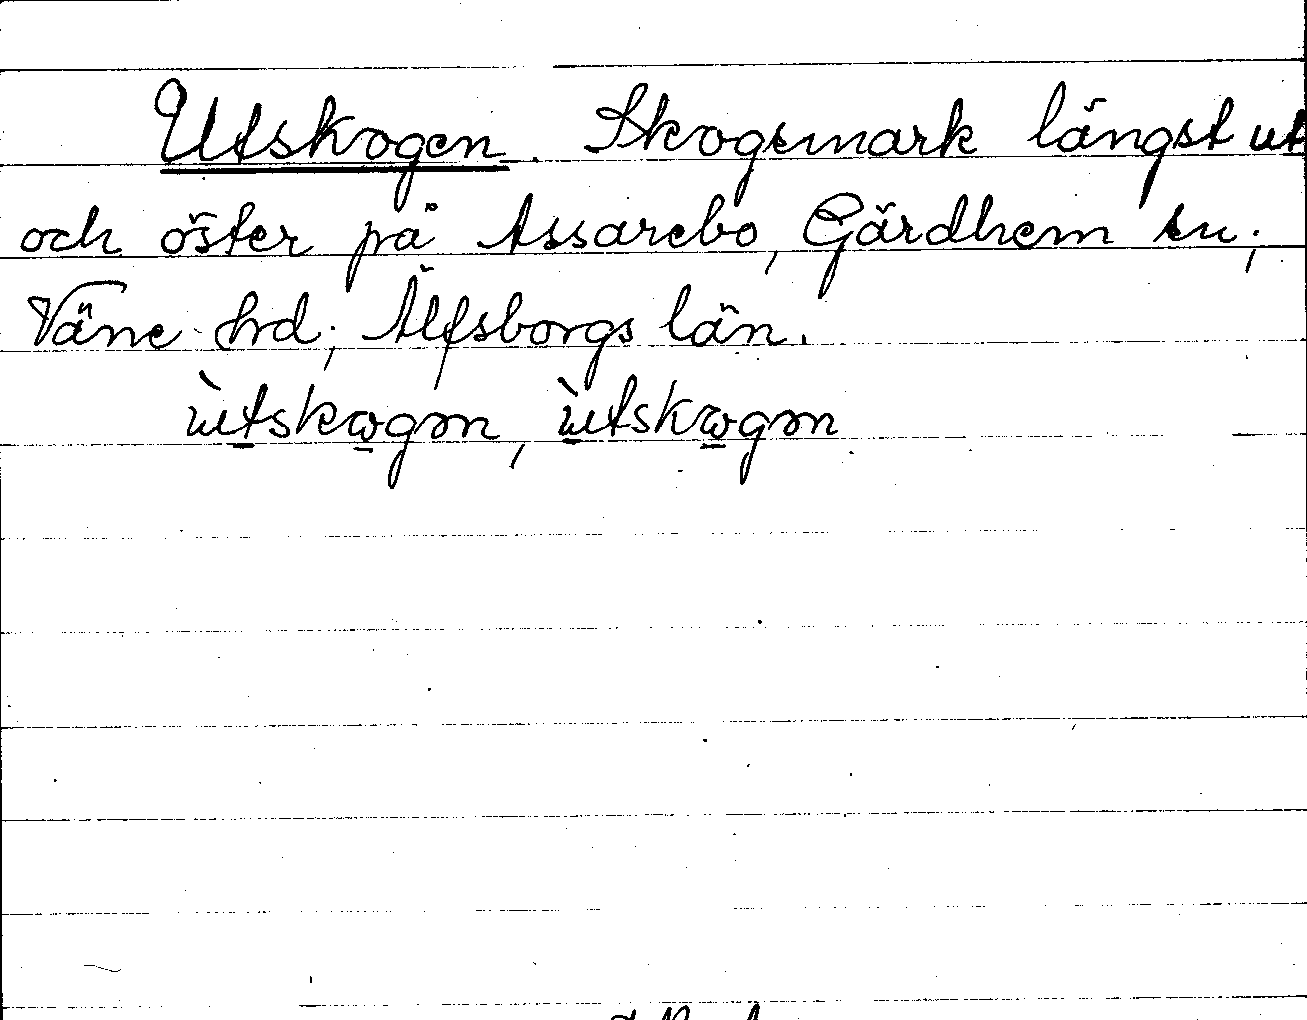 Utskogen. Skogsmark längst ut
och öster på Assarebo, Gärdhem sn;
Väne hd; Älfsborgs län.
ùtskωgən, ùtskωgən